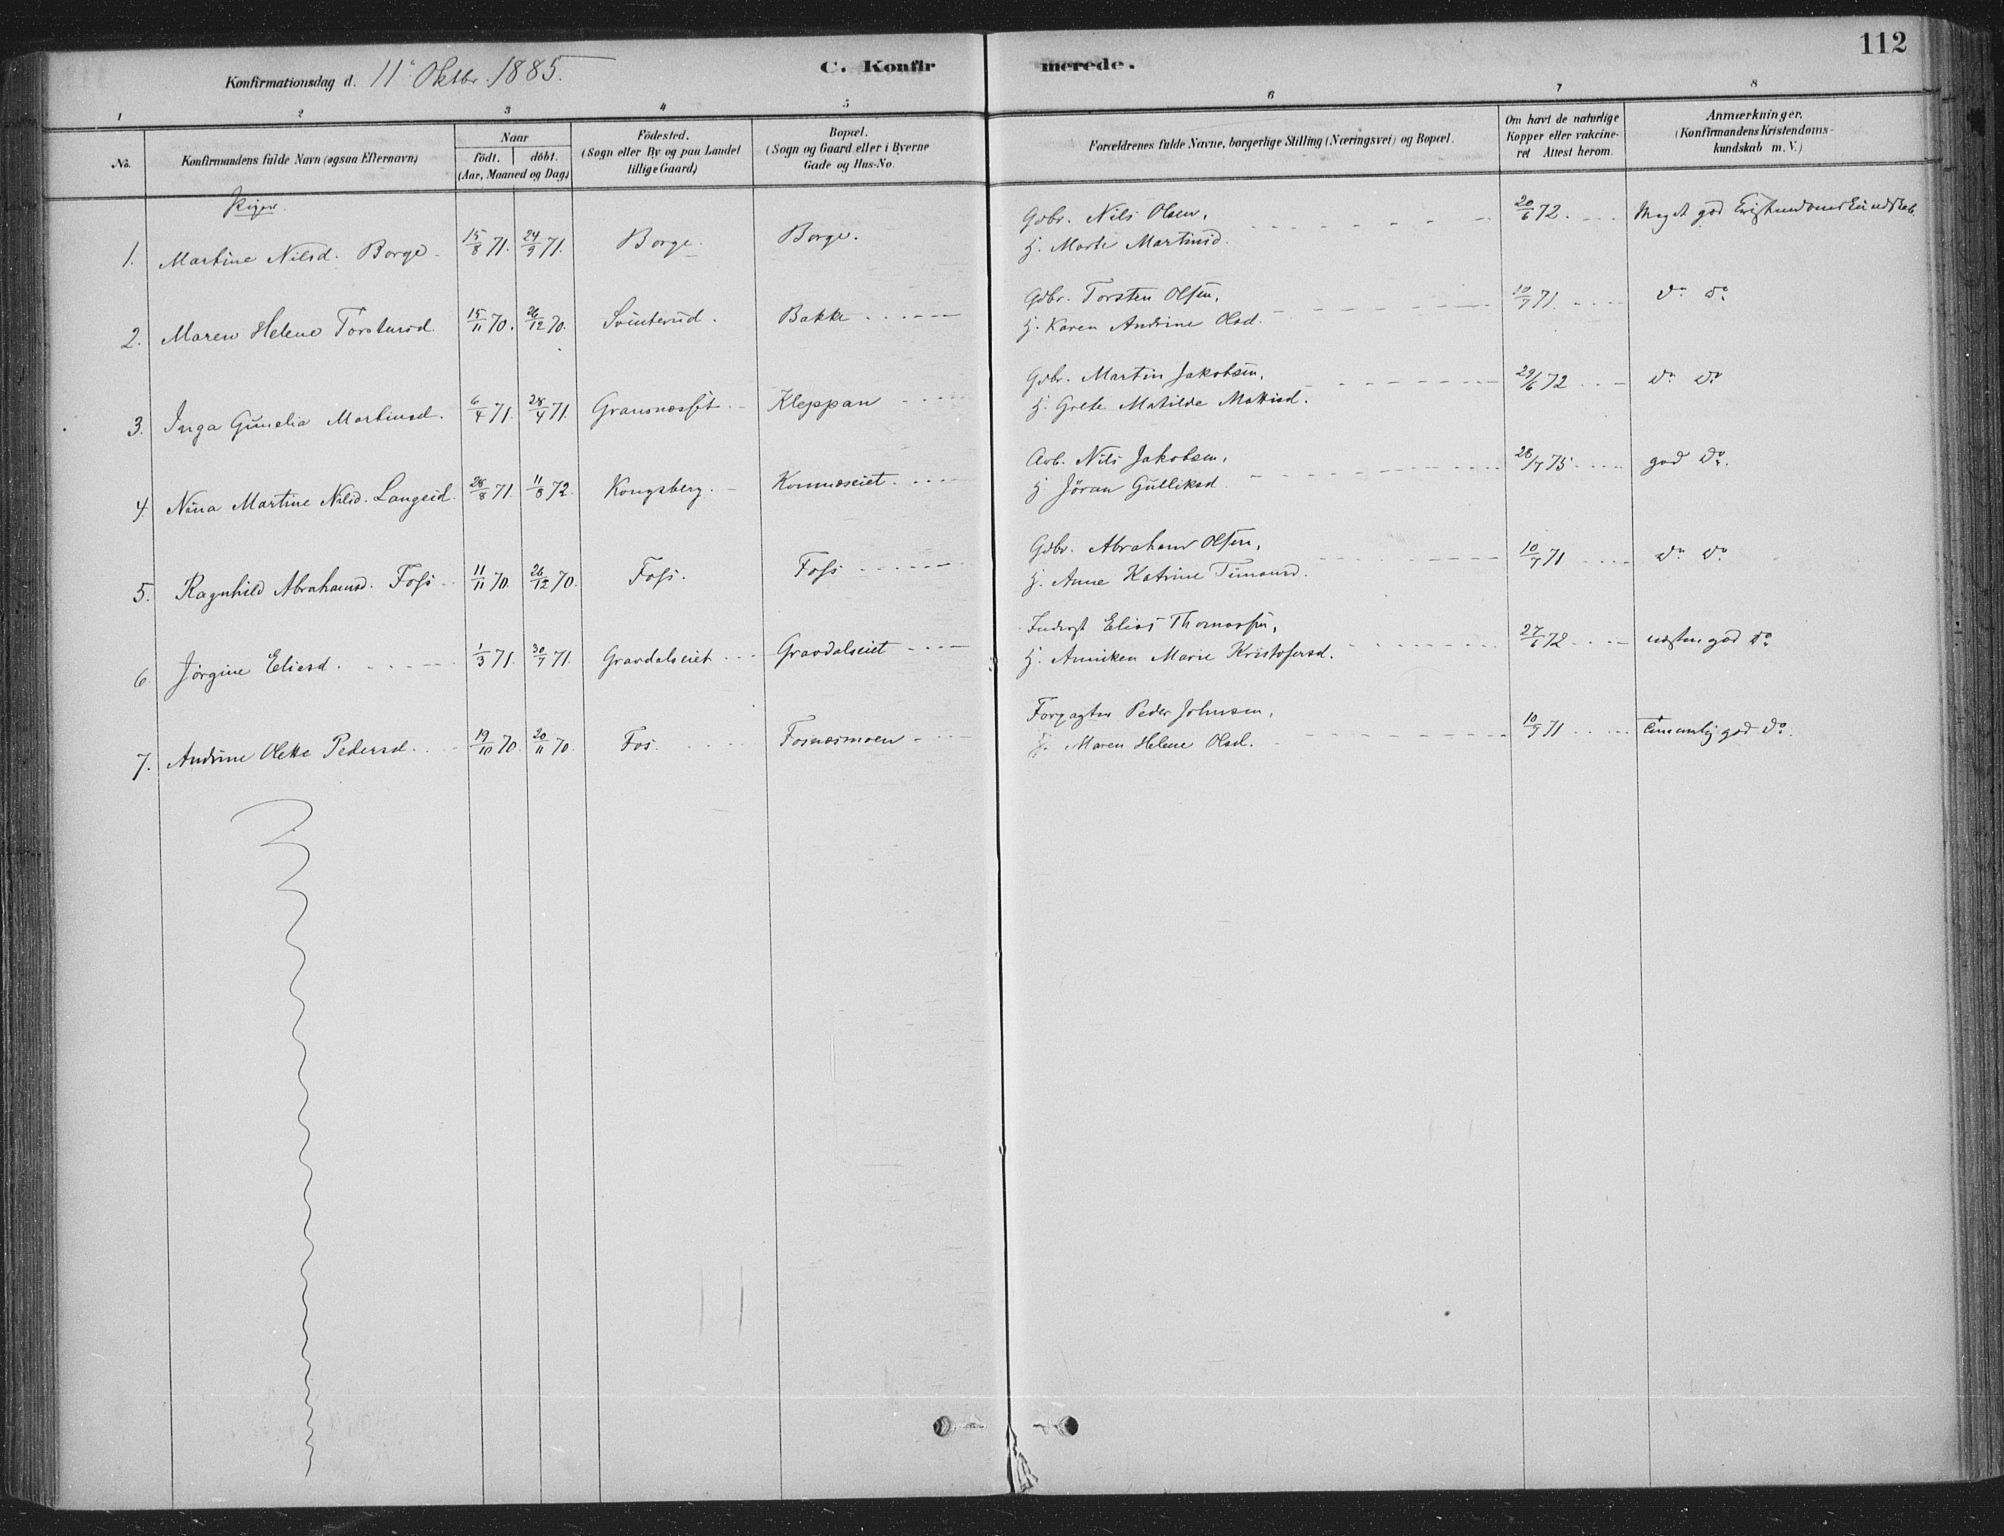 112
Konfirmationsdag d. 11' Oktbr. 1885.
C. Konfir
merede.
1 2 3 4 5 6 7 8
No.
Konfirmandens fulde Navn (ogsaa Efternavn)
Naar
födt. döbt.
(Aar, Maaned og Dag)
Födested.
(Sogn eller By og paa Landet
tillige Gaard)
Bopæl.
(Sogn og Gaard eller i Byerne
Gade og Hus-No.
Forældrenes fulde Navne, borgerlige Stilling (Næringsvei) og Bopæl.
Om havt de naturlige
Kopper eller vakcine-
ret Attest herom.
Anmærkninger.
(Konfirmandens Kristendoms-
kundskab m. V.)
Piger.
Gdbr. Nils Olsen, 20/6 72. Meget god Kristendomskundskab.
1. Martine Nilsd. Borge 15/8 71. 24/9 71. Borge. Borge.
H. Marte Martinsd.
Gdbr. Torsten Olsen, 10/7 71. do do
2. Maren Helene Torstensd. 15/11 70. 26/12 70. Svinterud. Bakke
H. Karen Andrine Olsd.
Gdbr. Martin Jakobsen, 29/6 72 do do
3. Inga Gunelia Martinsd. 6/4 71. 28/4 71. Gransnæsset Kleppan
H. Grete Matilde Mattisd.
Arb. Nils Jakobsen, 28/7 75 god do.
4. Nina Martine Nilsd. Langeid. 28/8 71. 11/8 72. Kongsberg. Komnæseiet.
H. Jöran Gulliksd.
Gdbr. Abraham Olsen, 10/7 71 do do
5. Ragnhild Abrahamsd. Foss 11/11 70. 26/12 70. Foss. Foss
H. Anne Katrine Simonsd.
Inderst Elias Thomassen, 27/6 72 næsten god do
6. Jörgine Eliesd. 1/3 71. 30/7 71. Gravdalseiet Gravdalseiet
H. Anniken Marie Kristofersd.
Forpagter Peder Johnsen, 10/9 71 temmelig god do.
7. Andrine Olette Pedersd. 19/10 70. 20/11 70. Fos. Fosnæsmoen
H. Maren Helene Olsd.